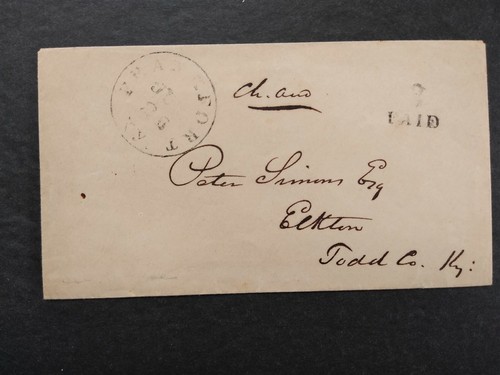 FRANKFORT KY
Ch. Aud
PAID
Peter Simons Esq
Elkton
Todd Co. Ky: